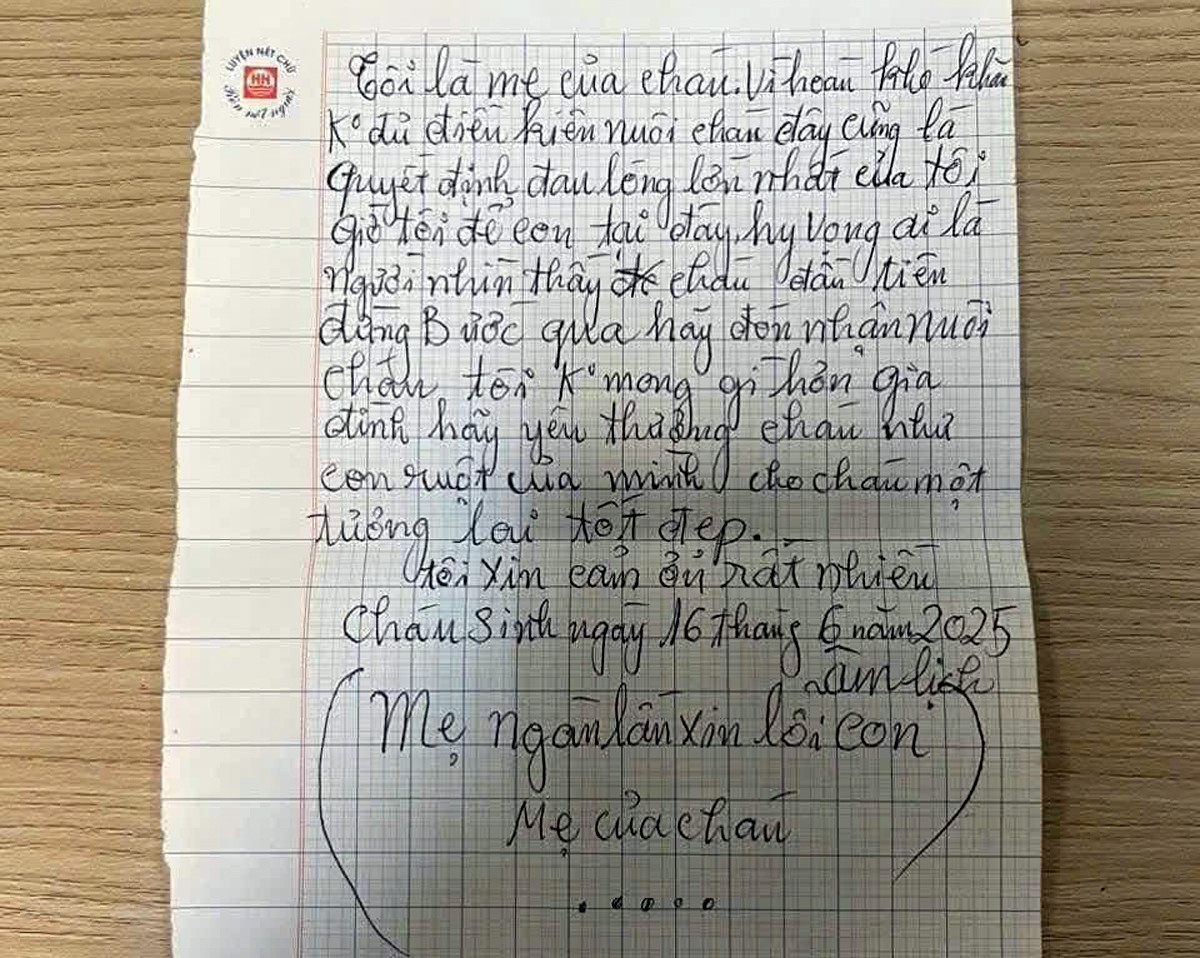 LUYỆN NÉT CHỮ
HH
Rèn nết người
Tôi là mẹ của cháu. Vì hoàn khó khăn
K° đủ điều kiện nuôi cháu đây cũng là
quyết định đau lòng lớn nhất của tôi
giờ tôi để con tại đây, hy vọng ai là
người nhìn thấy cháu đầu tiên
đừng Bước qua hãy đón nhận nuôi
cháu, tôi K° mong gì hơn gia
đình hãy yêu thương cháu như
con ruột của mình cho cháu một
tương lai tốt đẹp.
tôi xin cảm ơn rất nhiều
Cháu sinh ngày 16 tháng 6 năm 2025
âm lịch
(Mẹ ngàn lần xin lỗi con
Mẹ của cháu
.....)